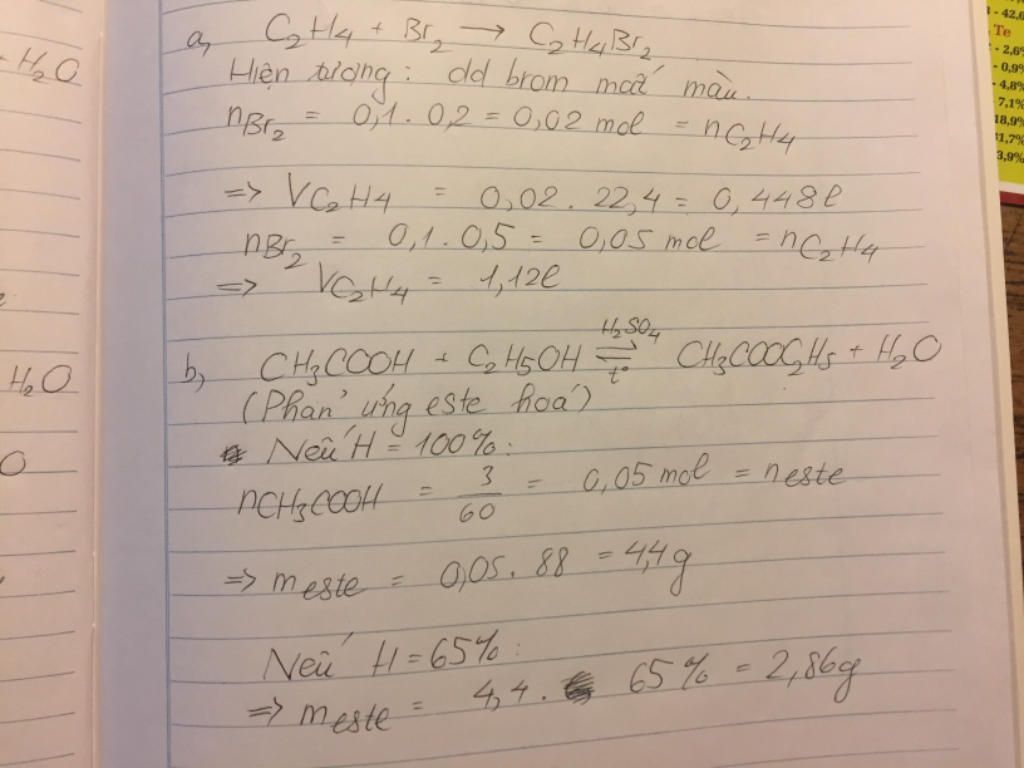 + H₂O
H₂O
O
a, C₂H₄ + Br₂ → C₂H₄Br₂
Hiện tượng: dd brom mất màu.
nBr₂ = 0,1 . 0,2 = 0,02 mol = nC₂H₄
=> VC₂H₄ = 0,02 . 22,4 = 0,448l
nBr₂ = 0,1 . 0,5 = 0,05 mol = nC₂H₄
=> VC₂H₄ = 1,12l
H₂SO₄
b, CH₃COOH + C₂H₅OH ⇌ CH₃COOC₂H₅ + H₂O
t°
(Phản ứng este hoá)
Nếu H = 100% :
nCH₃COOH = 3/60 = 0,05 mol = neste
=> meste = 0,05 . 88 = 4,4g
Nếu H = 65% :
=> meste = 4,4 . 65% = 2,86g
- 42,0
Te
- 2,6%
- 0,9%
- 4,8%
7,1%
18,9%
31,7%
3,9%